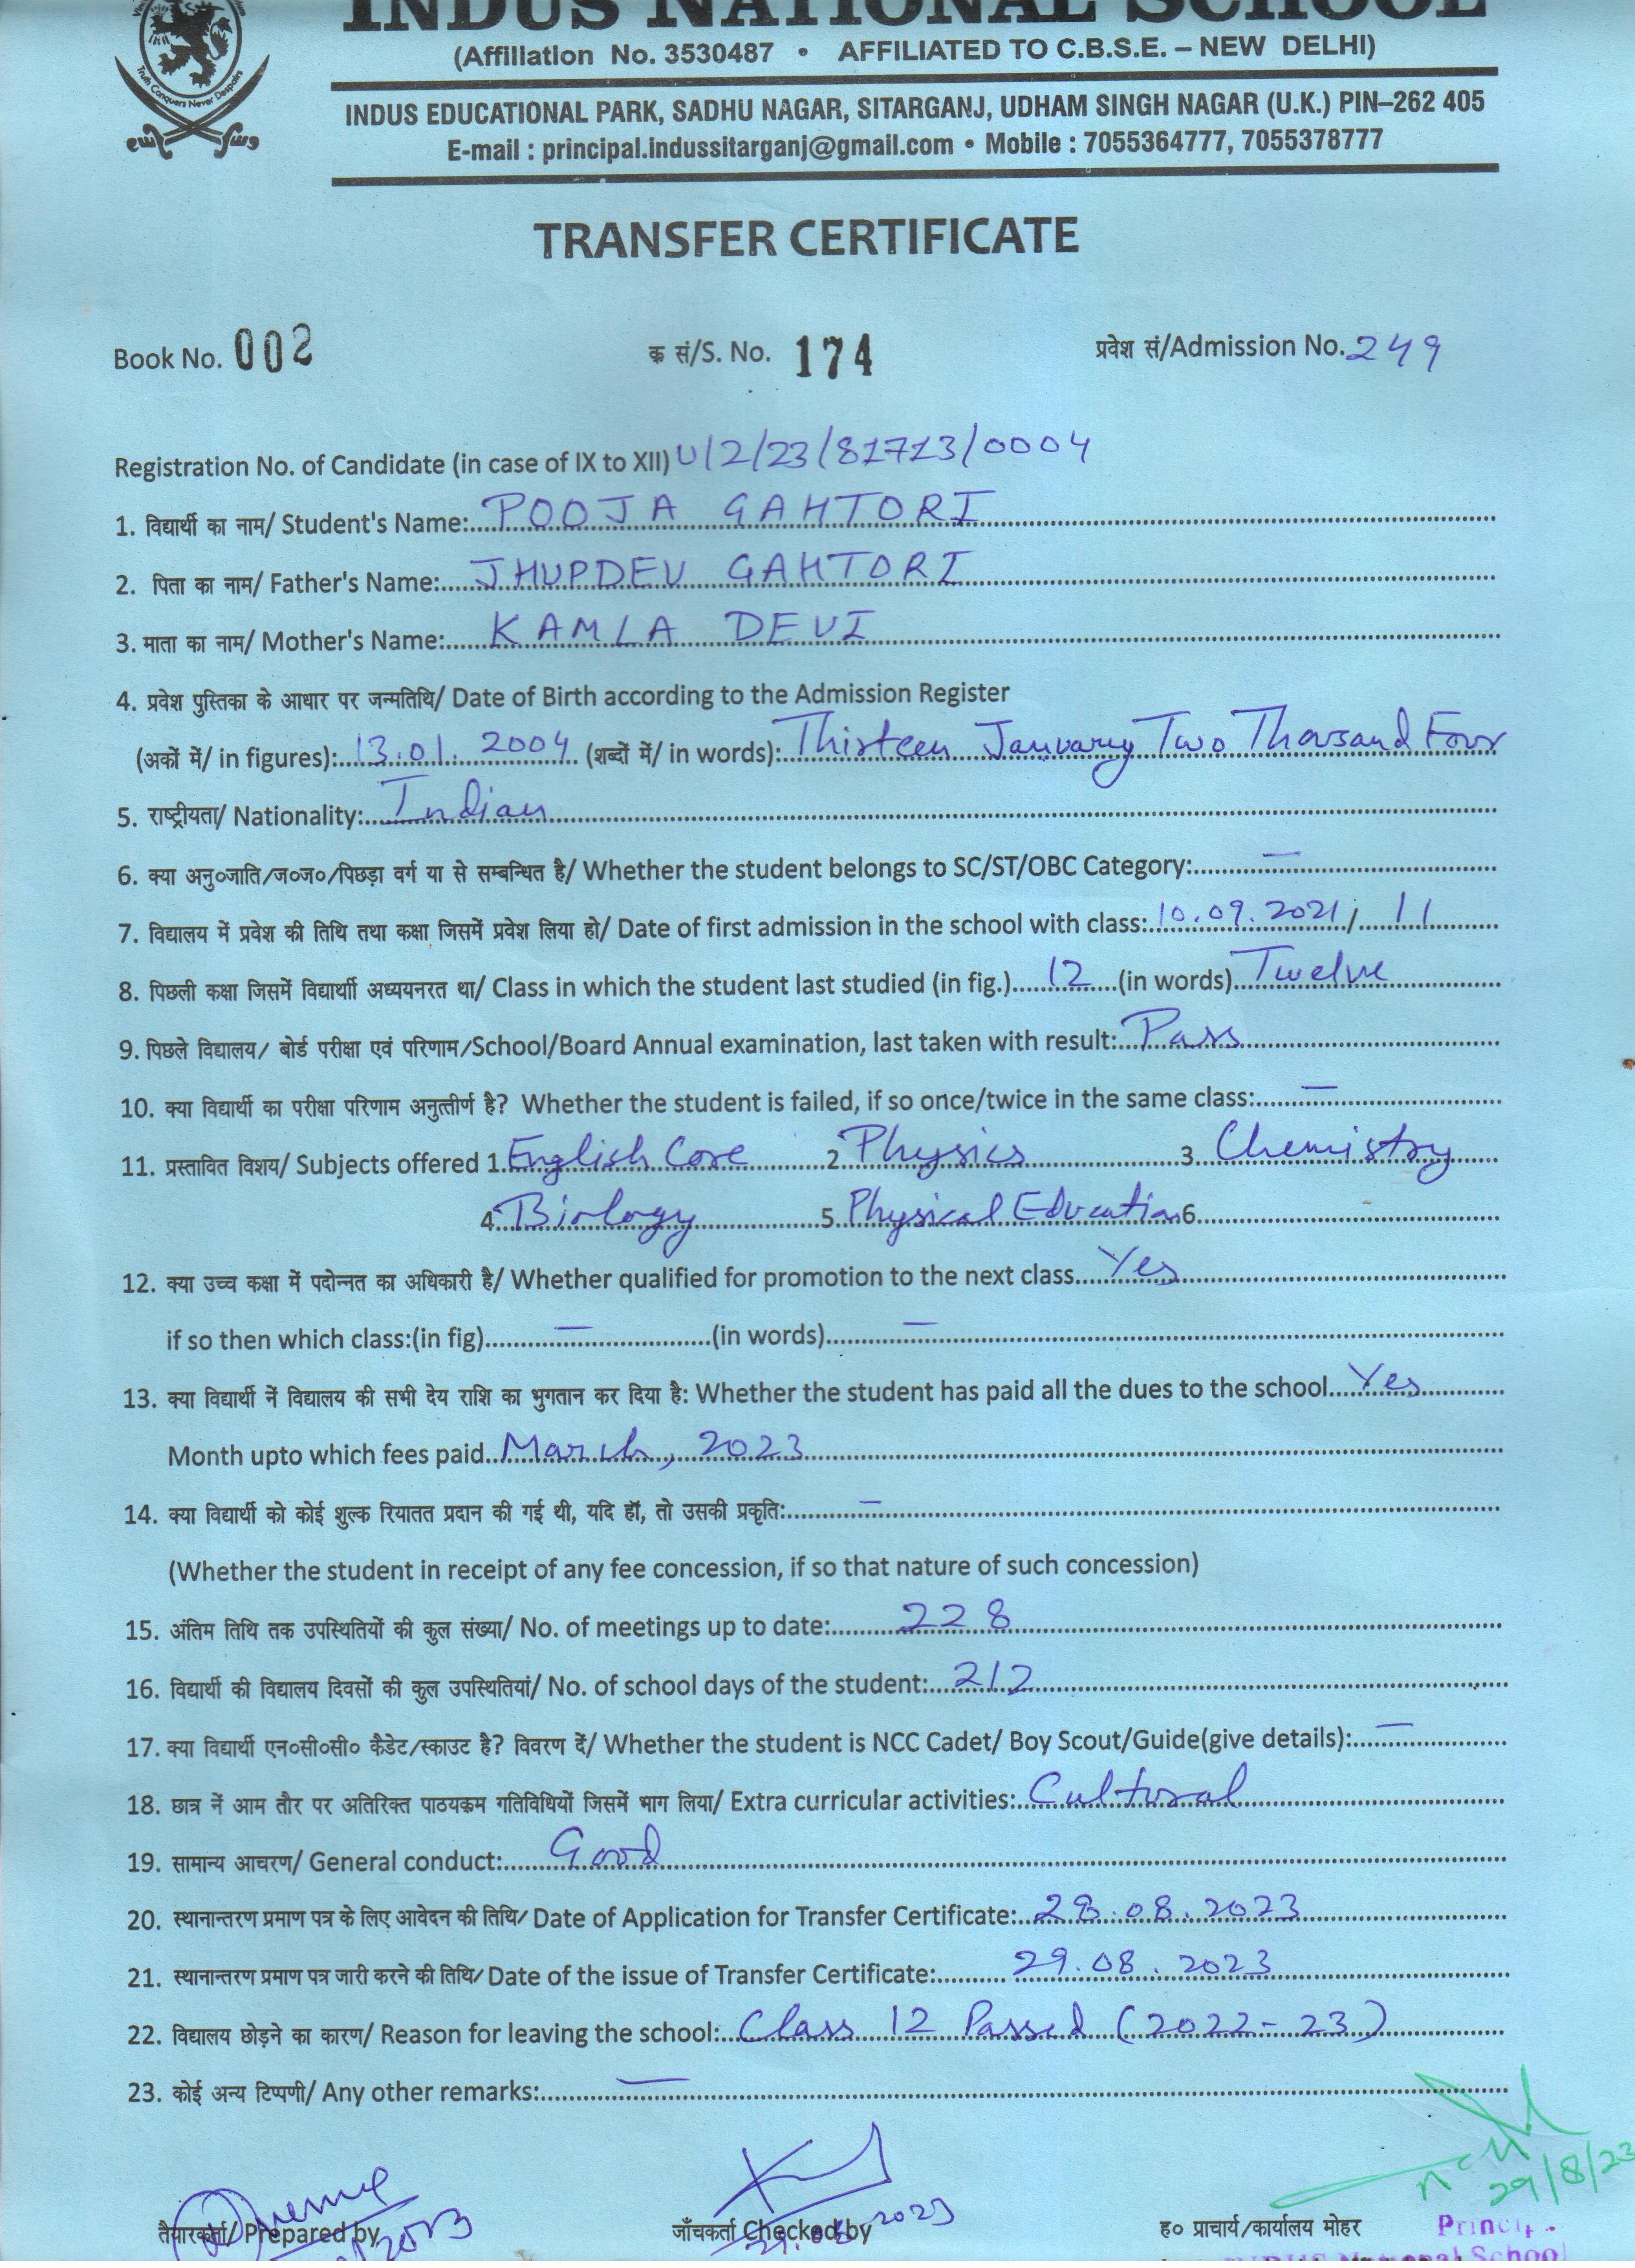 INDUS NATIONAL SCHOOL
(Affiliation No. 3530487 • AFFILIATED TO C.B.S.E. – NEW DELHI)
Truth Conquers Never Despairs
INDUS EDUCATIONAL PARK, SADHU NAGAR, SITARGANJ, UDHAM SINGH NAGAR (U.K.) PIN–262 405
E-mail : principal.indussitarganj@gmail.com • Mobile : 7055364777, 7055378777
TRANSFER CERTIFICATE
Book No. 002 क सं/S. No. 174 प्रवेश सं/Admission No. 249
Registration No. of Candidate (in case of IX to XII) U/2/23/81713/0004
1. विद्यार्थी का नाम/ Student's Name: POOJA GAHTORI
2. पिता का नाम/ Father's Name: JHUPDEV GAHTORI
3. माता का नाम/ Mother's Name: KAMLA DEVI
4. प्रवेश पुस्तिका के आधार पर जन्मतिथि/ Date of Birth according to the Admission Register
(अकों में/ in figures): 13.01.2004 (शब्दों में/ in words): Thirteen January Two Thousand Four
5. राष्ट्रीयता/ Nationality: Indian
6. क्या अनु०जाति/ज०ज०/पिछड़ा वर्ग या से सम्बन्धित है/ Whether the student belongs to SC/ST/OBC Category: —
7. विद्यालय में प्रवेश की तिथि तथा कक्षा जिसमें प्रवेश लिया हो/ Date of first admission in the school with class: 10.09.2021 / 11
8. पिछली कक्षा जिसमें विद्यार्थी अध्ययनरत था/ Class in which the student last studied (in fig.) 12 (in words) Twelve
9. पिछले विद्यालय/ बोर्ड परीक्षा एवं परिणाम/School/Board Annual examination, last taken with result: Pass
10. क्या विद्यार्थी का परीक्षा परिणाम अनुत्तीर्ण है? Whether the student is failed, if so once/twice in the same class: —
11. प्रस्तावित विशय/ Subjects offered 1. English Core 2. Physics 3. Chemistry
4. Biology 5. Physical Education 6.
12. क्या उच्च कक्षा में पदोन्नत का अधिकारी है/ Whether qualified for promotion to the next class Yes
if so then which class:(in fig) — (in words) —
13. क्या विद्यार्थी नें विद्यालय की सभी देय राशि का भुगतान कर दिया है: Whether the student has paid all the dues to the school Yes
Month upto which fees paid March, 2023
14. क्या विद्यार्थी को कोई शुल्क रियातत प्रदान की गई थी, यदि हॉ, तो उसकी प्रकृति: —
(Whether the student in receipt of any fee concession, if so that nature of such concession)
15. अंतिम तिथि तक उपस्थितियों की कुल संख्या/ No. of meetings up to date: 228
16. विद्यार्थी की विद्यालय दिवसों की कुल उपस्थितियां/ No. of school days of the student: 212
17. क्या विद्यार्थी एन०सी०सी० कैडेट/स्काउट है? विवरण दें/ Whether the student is NCC Cadet/ Boy Scout/Guide(give details): —
18. छात्र नें आम तौर पर अतिरिक्त पाठयक्रम गतिविधियों जिसमें भाग लिया/ Extra curricular activities: Cultural
19. सामान्य आचरण/ General conduct: Good
20. स्थानान्तरण प्रमाण पत्र के लिए आवेदन की तिथि/ Date of Application for Transfer Certificate: 28.08.2023
21. स्थानान्तरण प्रमाण पत्र जारी करने की तिथि/ Date of the issue of Transfer Certificate: 29.08.2023
22. विद्यालय छोड़ने का कारण/ Reason for leaving the school: Class 12 Passed (2022-23)
23. कोई अन्य टिप्पणी/ Any other remarks: —
29/8/23
तैयारकर्ता/ Prepared by जाँचकर्ता Checked by ह० प्राचार्य/कार्यालय मोहर
INDUS National School